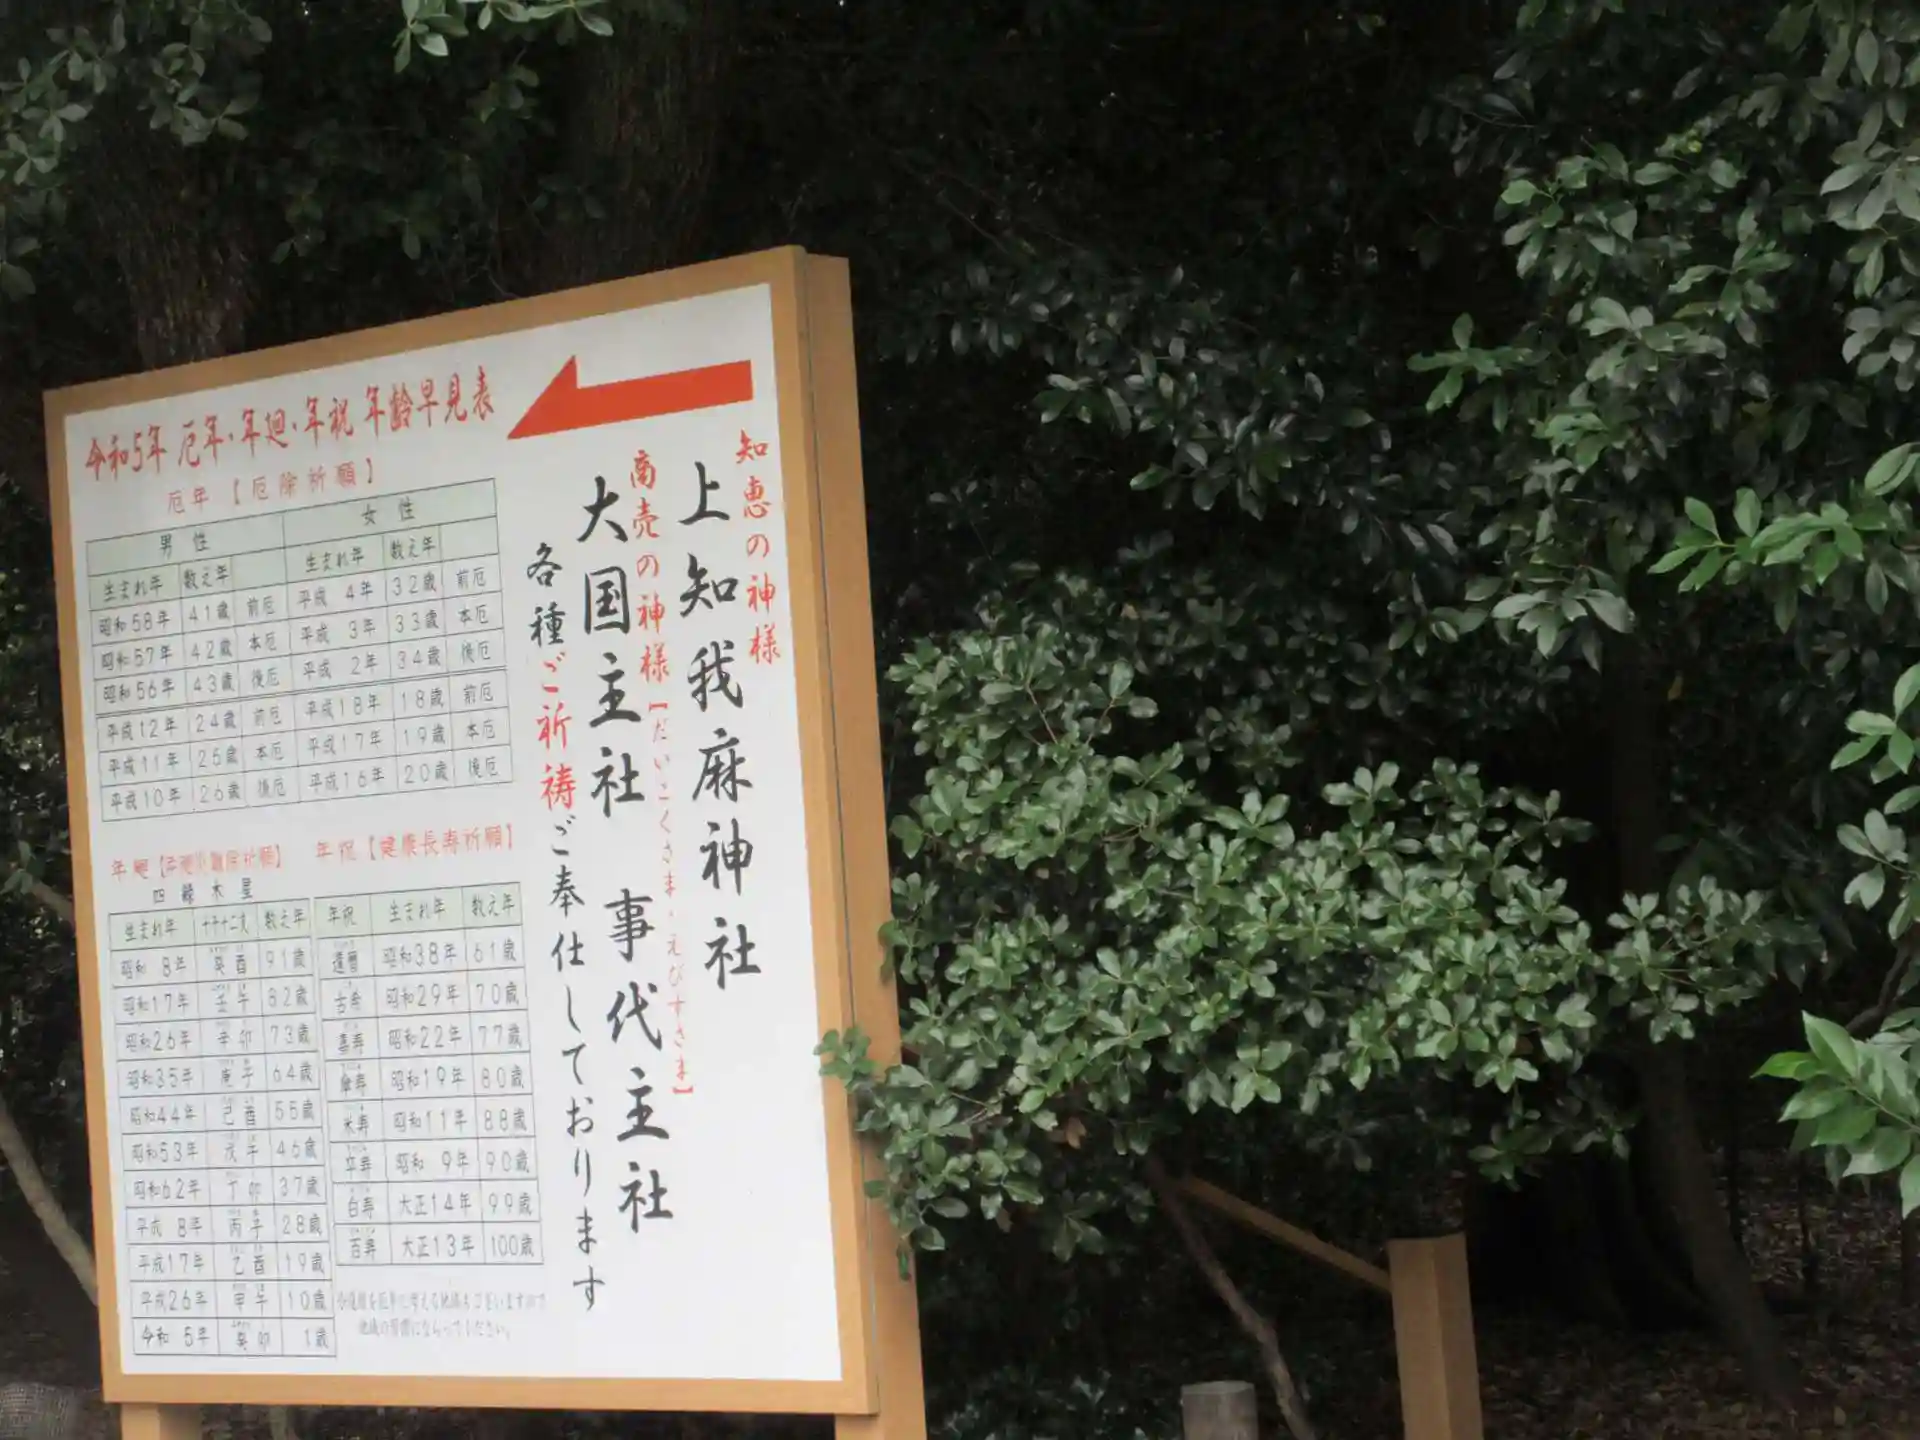 知恵の神様
上知我麻神社
商売の神様【だいこくさま・えびすさま】
大国主社 事代主社
各種ご祈祷ご奉仕しております
令和5年 厄年・年廻・年祝 年齢早見表
厄年【厄除祈願】
男性 女性
生まれ年 数え年 生まれ年 数え年
昭和58年 41歳 前厄 平成 4年 32歳 前厄
昭和57年 42歳 本厄 平成 3年 33歳 本厄
昭和56年 43歳 後厄 平成 2年 34歳 後厄
平成12年 24歳 前厄 平成18年 18歳 前厄
平成11年 25歳 本厄 平成17年 19歳 本厄
平成10年 26歳 後厄 平成16年 20歳 後厄
年廻
四緑木星
生まれ年 十干十二支 数え年
昭和 8年 癸酉 91歳
昭和17年 壬午 82歳
昭和26年 辛卯 73歳
昭和35年 庚子 64歳
昭和44年 己酉 55歳
昭和53年 戊午 46歳
昭和62年 丁卯 37歳
平成 8年 丙子 28歳
平成17年 乙酉 19歳
平成26年 甲午 10歳
令和 5年 癸卯 1歳
年祝【健康長寿祈願】
年祝 生まれ年 数え年
還暦 昭和38年 61歳
古希 昭和29年 70歳
喜寿 昭和22年 77歳
傘寿 昭和19年 80歳
米寿 昭和11年 88歳
卒寿 昭和 9年 90歳
白寿 大正14年 99歳
百寿 大正13年 100歳
地域の習慣にならってください。